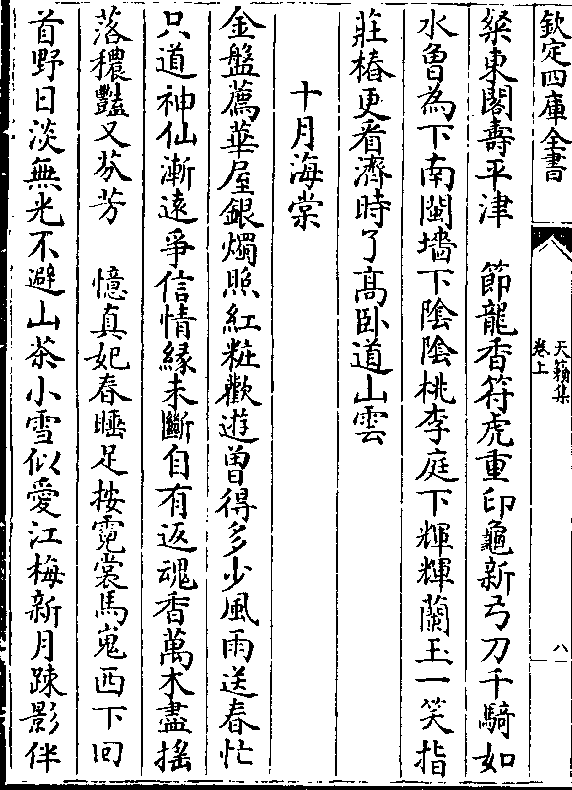 欽定四庫全書
天籟集
卷上
八
槃東閣壽平津　節龍香符虎重印龜新弓刀千騎如
水魯為下南閩墻下陰陰桃李庭下輝輝蘭玉一笑指
莊椿更看濟時了髙卧道山雲
十月海棠
金盤薦華屋銀燭照紅粧歡遊曽得多少風雨送春忙
只道神仙漸逺爭信情縁未斷自有返魂香萬木盡揺
落穠豔又芬芳　憶真妃春睡足按霓裳馬嵬西下回
首野日淡無光不避山茶小雪似愛江梅新月踈影伴